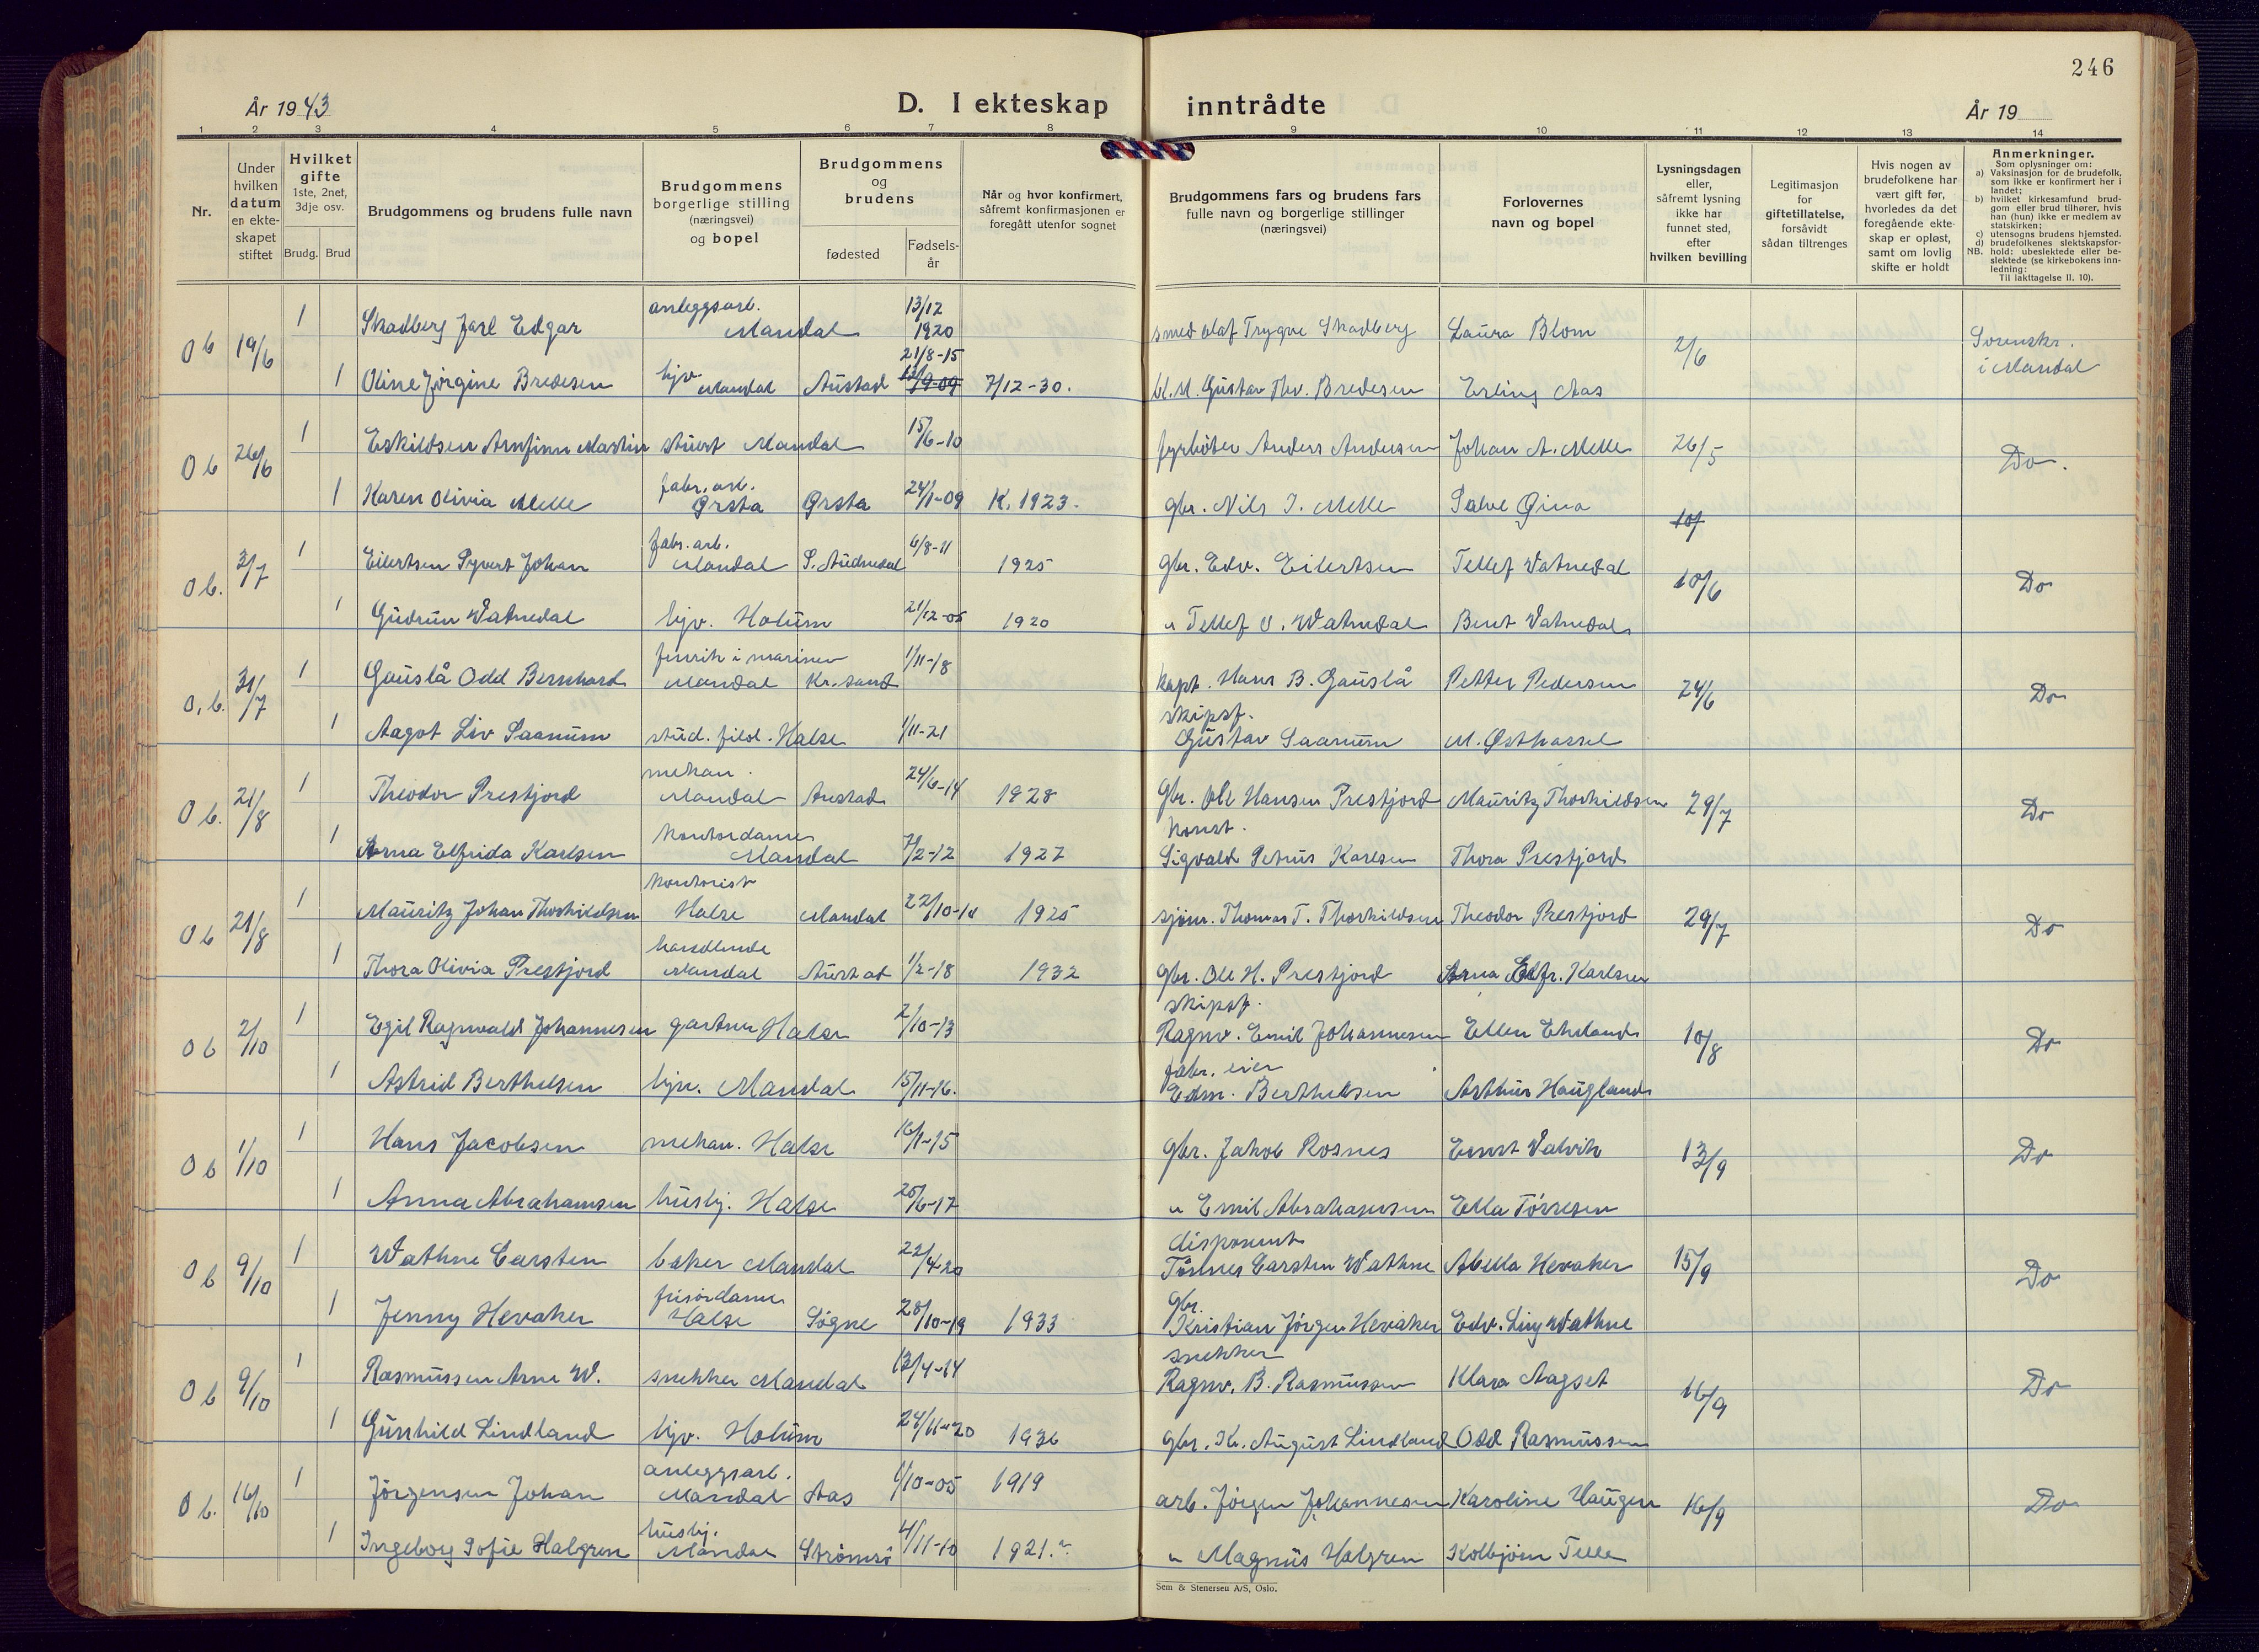 246
År 1943
D. I ekteskap inntrådte
År 19
1 2 3 4 5 6 7 8 9 10 11 12 13 14
Nr.
Under hvilken datum en ekteskapet stiftet
Hvilket gifte
1ste, 2net, 3dje osv.
Brudg. Brud
Brudgommens og brudens fulle navn
Brudgommens borgerlige stilling (næringsvei) og bopel
Brudgommens og brudens
fødested
Fødselsår
Når og hvor konfirmert, såfremt konfirmasjonen er foregått utenfor sognet
Brudgommens fars og brudens fars fulle navn og borgerlige stillinger (næringsvei)
Forlovernes navn og bopel
Lysningsdagen eller, såfremt lysning ikke har funnet sted, efter hvilken bevilling
Legitimasjon for giftetillatelse, forsåvidt sådan tiltrenges
Hvis nogen av brudefolkene har vært gift før, hvorledes da det foregående ekteskap er opløst, samt om lovlig skifte er holdt
Anmerkninger.
Som oplysninger om:
a) Vaksinasjon for de brudefolk, som ikke er konfirmert her i landet;
b) hvilket kirkesamfund brudgom eller brud tilhører, hvis han (hun) ikke er medlem av statskirken;
c) utensogns brudens hjemsted.
d) brudefolkenes slektskapsforhold: ubeslektede eller beslektede (se kirkebokens innledning:
NB. Til iakttagelse II. 10).
Ob 19/6 1 Skadberg Jarl Edgar anleggsarb. Mandal 13/12 1920 smed Olaf Trygve Skadberg Laura Blom 2/6 Sorenskr. i Mandal
1 Oline Jørgine Bredesen hjv. Mandal Austad 21/8-15 7/12-30. Gustav Thv. Bredesen Erling Aas
Ob 26/6 1 Eskildsen Arnfinn Martin stuert Mandal 15/6-10 fyrbøter Anders Andersen Johan A. Melle 26/5 Do.
1 Karen Olivia Melle fabr. arb. Ørsta Ørsta 24/1-09 K. 1923. gbr. Nils J. Melle Salve Øina
Ob. 3/7 1 Eilertsen Syvert Johan fabr. arb. Mandal S. Audnedal 6/8-11 1925 gbr. Edv. Eilertsen Tellef Vatnedal 10/6 Do
1 Gudrun Vatnedal hjv. Holum 21/12-05 1920 " Tellef O. Watnedal Bent Vatnedal
O.b. 31/7 1 Gauslå Odd Bernhard fenrik i marinen Mandal Kr.sand 1/11-18 kapt. Hans B. Gauslå Petter Pedersen 24/6 Do
1 Aagot Liv Saanum stud. filol. Halse 1/11-21 skipsf. Gustav Saanum M. Østhassel
Ob. 21/8 1 Theodor Prestjord mekan. Mandal Austad 24/6-14 1928 gbr. Ole Hansen Prestjord Mauritz Thorkildsen 29/7 Do
1 Arna Elfrida Karlsen kontordame Mandal 7/2-12 1927 konst. Sigvald Petrus Karlsen Thora Prestjord
Ob 21/8 1 Mauritz Johan Thorkildsen kontorist Halse Mandal 22/10-10 1925 sjøm. Thomas T. Thorkildsen Theodor Prestjord 29/7 Do
1 Thora Olivia Prestjord handlende Mandal Austad 1/2-18 1932 gbr. Ole H. Prestjord Arna Elfr. Karlsen
Ob 2/10 1 Egil Ragnvald Johannesen gartner Halse 2/10-13 skipsf. Ragnv. Emil Johannesen Ellen Ehrland 10/8 Do
1 Astrid Berthelsen hjv. Mandal 15/11-16. fabr. eier Edm. Berthelsen Arthur Haugland
Ob 1/10 1 Hans Jacobsen mekan. Halse 16/1-15 gbr. Jakob Rosnes Ernst Valvik 13/9 Do
1 Anna Abrahamsen hushj. Halse 25/6-17 " Emil Abrahamsen Ella Tørresen
Ob 9/10 1 Wathne Carsten baker Mandal 22/4-20 disponent Tønnes Carsten Wathne Abella Hevaker 15/9 Do
1 Jenny Hevaker frisørdame Halse Søgne 28/10-19 1933 gbr. Kristian Jørgen Hevaker Edv. Ling Wathne
Ob 9/10 1 Rasmussen Arne W. snekker Mandal 13/4-14 snekker Ragnv. B. Rasmussen Klara Aagset 16/9 Do
1 Gunhild Lindland hjv. Holum 24/11-20 1936 gbr. Kr. August Lindland Odd Rasmussen
Ob. 16/10 1 Jørgensen Johan anleggsarb. Mandal Aas 1/10-05 1919 arb. Jørgen Johannesen Karoline Haugen 16/9 Do
1 Ingeborg Sofie Halgren hushj. Mandal Strømsø 4/11-10 1921. " Magnus Halgren Kolbjørn Telle
Sem & Stenersen A/S, Oslo.